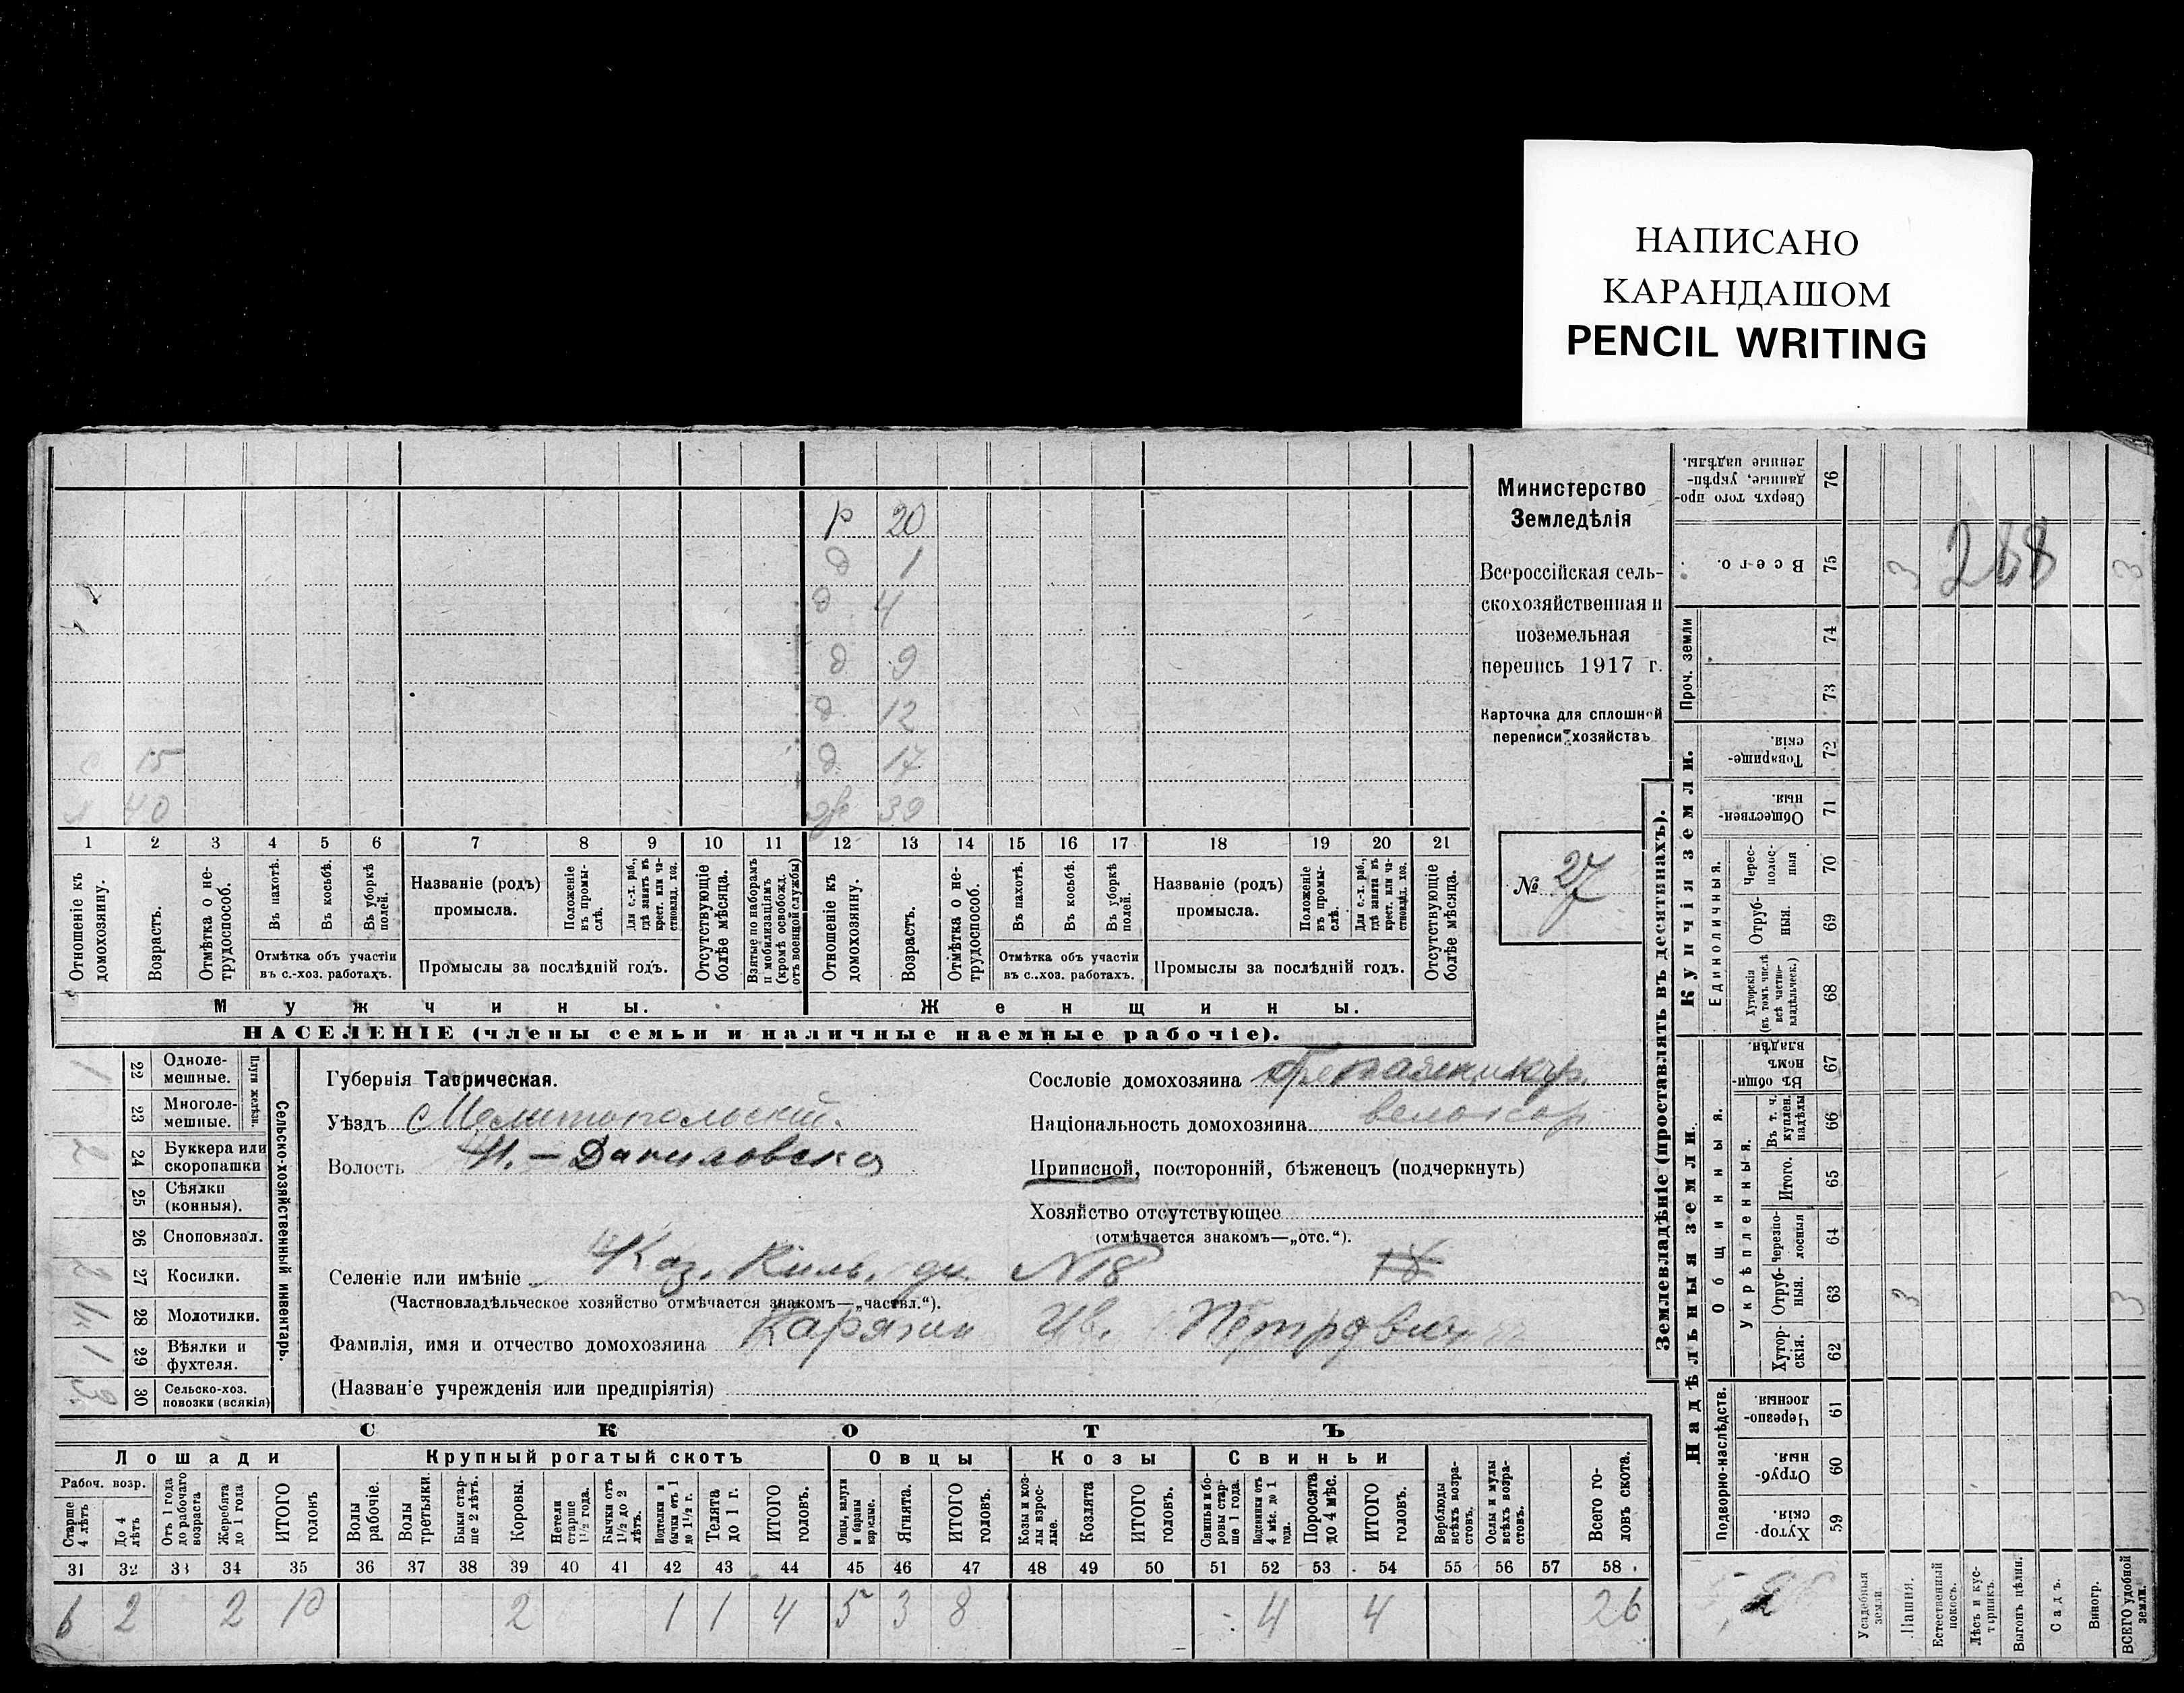 НАПИСАНО
КАРАНДАШОМ
PENCIL WRITING
Министерство
Земледѣлія
Всероссійская сель-
скохозяйственная и
поземельная
перепись 1917 г.
Карточка для сплошной
переписи хозяйствъ
№ 27
р 20
д 1
д 4
д 9
д 12
15 д 17
40 39
1 2 3 4 5 6 7 8 9 10 11 12 13 14 15 16 17 18 19 20 21
Отношеніе къ домохозяину.
Возрастъ.
Отмѣтка о не-трудоспособ.
Въ пахотѣ.
Въ косьбѣ.
Въ уборкѣ полей.
Отмѣтка объ участіи
въ с.-хоз. работахъ.
Названіе (родъ)
промысла.
Положеніе въ промы-слѣ.
Для с.-х. раб., гдѣ занятъ въ крест. или ча-стновлад. хоз.
Промыслы за послѣдній годъ.
Отсутствующіе болѣе мѣсяца.
Взятые по наборамъ и мобилизаціямъ (кромѣ освобожд. отъ военной службы)
Отношеніе къ домохозяину.
Возрастъ.
Отмѣтка о не-трудоспособ.
Въ пахотѣ.
Въ косьбѣ.
Въ уборкѣ полей.
Отмѣтка объ участіи
въ с..хоз. работахъ.
Названіе (родъ)
промысла.
Положеніе въ промы-слѣ.
Для с.-х. раб., гдѣ занята въ крест. или ча-стновлад. хоз.
Промыслы за послѣдній годъ.
Отсутствующіе болѣе мѣсяца.
Мужчины.
Женщины.
НАСЕЛЕНІЕ (члены семьи и наличные наемные рабочіе).
Сельско-хозяйственный инвентарь.
Плуги желѣзн.
22 Одноле-мешные. 1
23 Многоле-мешные.
24 Буккера или скоропашки 2
25 Сѣялки (конныя).
26 Сноповязал.
27 Косилки.
28 Молотилки.
29 Вѣялки и фухтеля. 1
30 Сельско-хоз. повозки (всякія)
Губернія Таврическая.
Уѣздъ Мелитопольскій.
Волость Н.-Даниловска
Сословіе домохозяина
Національность домохозяина великор
Приписной, посторонній, бѣженецъ (подчеркнуть)
Хозяйство отсутствующее
(отмѣчается знакомъ—„отс.“).
Селеніе или имѣніе №18 18
(Частновладѣльческое хозяйство отмѣчается знакомъ—„частвл.“).
Фамилія, имя и отчество домохозяина Карягин Ив. Петрович
(Названіе учрежденія или предпріятія)
СКОТЪ
Лошади Крупный рогатый скотъ Овцы Козы Свиньи
Рабоч. возр.
Старше 4 лѣтъ
До 4 лѣтъ
Отъ 1 года до рабочаго возраста
Жеребята до 1 года
ИТОГО головъ
Волы рабочіе.
Волы третьяки.
Быки стар-ше 2 лѣтъ.
Коровы.
Нетели старше 1½ года.
Бычки отъ 1½ до 2 лѣтъ.
Подтелки и бычки отъ 1 до 1½ г.
Телята до 1 г.
ИТОГО головъ.
Овцы, валухи и бараны взрослые.
Ягнята.
ИТОГО головъ.
Козы и коз-лы взрос-лые.
Козлята
ИТОГО головъ.
Свиньи и бо-ровы стар-ше 1 года.
Подсвинки отъ 4 мѣс. до 1 года.
Поросята до 4 мѣс.
ИТОГО головъ.
Верблюды всѣхъ возра-стовъ.
Ослы и мулы всѣхъ возра-стовъ.
Всего го-ловъ скота.
31 32 33 34 35 36 37 38 39 40 41 42 43 44 45 46 47 48 49 50 51 52 53 54 55 56 57 58
6 2 2 10 2 1 1 4 5 3 8 4 4 26
Землевладѣніе (проставлять въ десятинахъ).
Купчія земли.
Проч. земли
Надѣльныя земли.
Общинныя.
Укрѣпленныя.
Единоличныя.
Подворно-наслѣдств.
Сверхъ того про-данные, укрѣп-ленные надѣлы. 76
Всего. 75 3 268 3
74
73
Товарище-скія. 72
Обществен-ныя. 71
Черес-полос-ныя 70
Отруб-ныя. 69
Хуторскія (въ томъ числѣ всѣ частно-владѣльческ.) 68
Въ общи-номъ владѣн. 67
Въ т. ч. куплен. надѣлы 66
Итого. 65
черезпо-лосныя 64
Отруб-ныя. 63 3 3
Хутор-скія. 62
Черезпо-лосныя 61
Отруб-ныя. 60
Хутор-скія. 59
Усадебныя земли.
Пашня.
Естественный покосъ.
Лѣсъ и кус-тарникъ.
Выгонъ цѣлин.
Садъ.
Виногр.
ВСЕГО удобной земли.